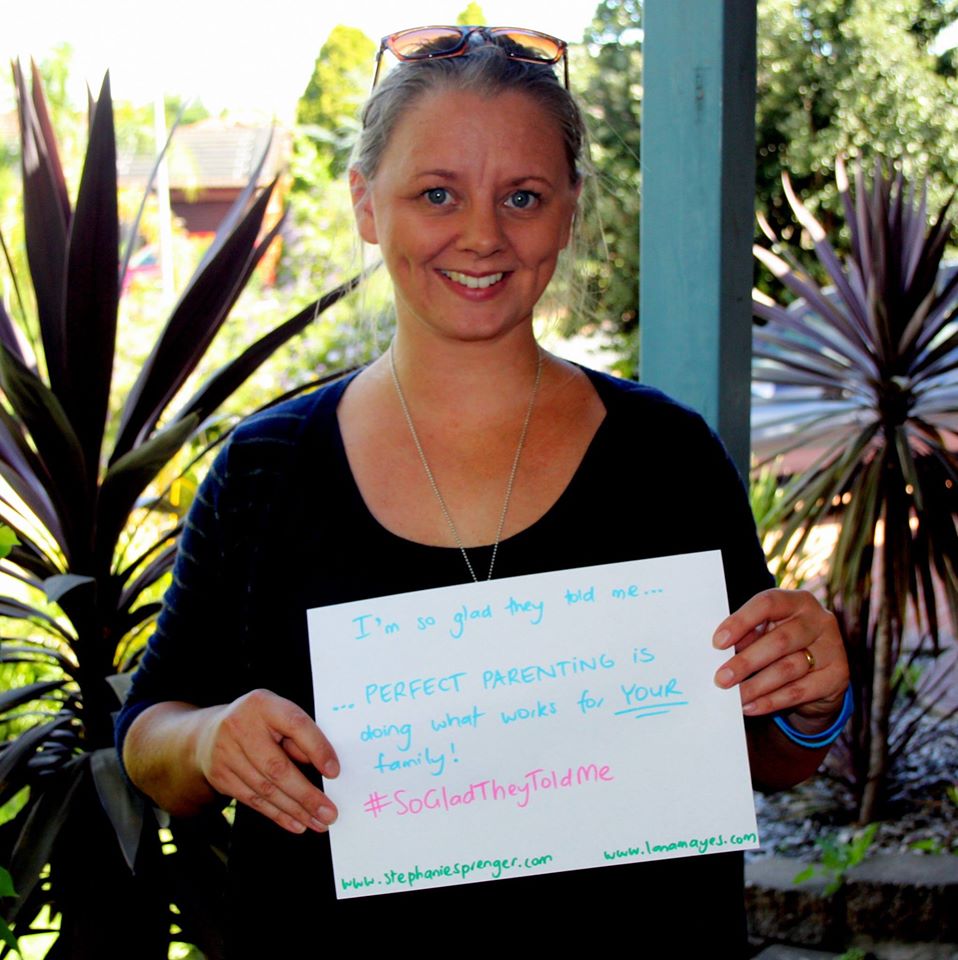 I'm so glad they told me...
... PERFECT PARENTING iS
doing what works for YOUR
family!
#SoGladTheyToldMe
www.stephaniesprenger.com
www.lanamayes.com